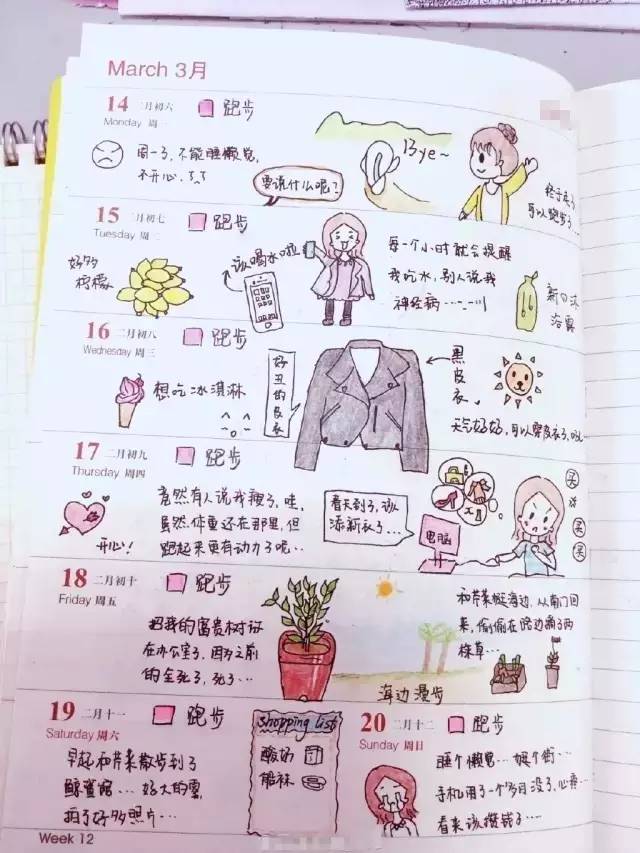 March 3月
14 二月初六 跑步
Monday 周一
周一了,不能睡懒觉,
不开心
Bye~
终于来了
可以跑步了...
要说什么呢?
15 二月初七 跑步
Tuesday 周二
好多
柠檬
该喝水啦
每一个小时就会提醒
我吃水,别人说我
神经病
新の沐
浴露
16 二月初八 跑步
Wednesday 周三
想吃冰淇淋
好丑的皮衣
黑皮衣
天气好好,可以穿皮衣了
17 二月初九 跑步
Thursday 周四
竟然有人说我瘦了,哇,
虽然体重还在那里,但
跑起来更有动力了呢...
开心!
春天到了,该
添新衣了...
电脑
买
买
买
18 二月初十 跑步
Friday 周五
把我的富贵树
在办公室了,因为之前
的全死了,死了...
海边漫步
和芹菜逛海边,从南门回
来,偷偷在路边摘了两
株草...
19 二月十一 跑步
Saturday 周六
早起和芹菜散步到了
鲸鲨馆...好大的雾,
拍了好多照片...
shopping list
酸奶
船袜
20 二月十二 跑步
Sunday 周日
睡个懒觉...逛个街...
手机用了一个多月没了,心疼...
看来该攒钱了...
Week 12